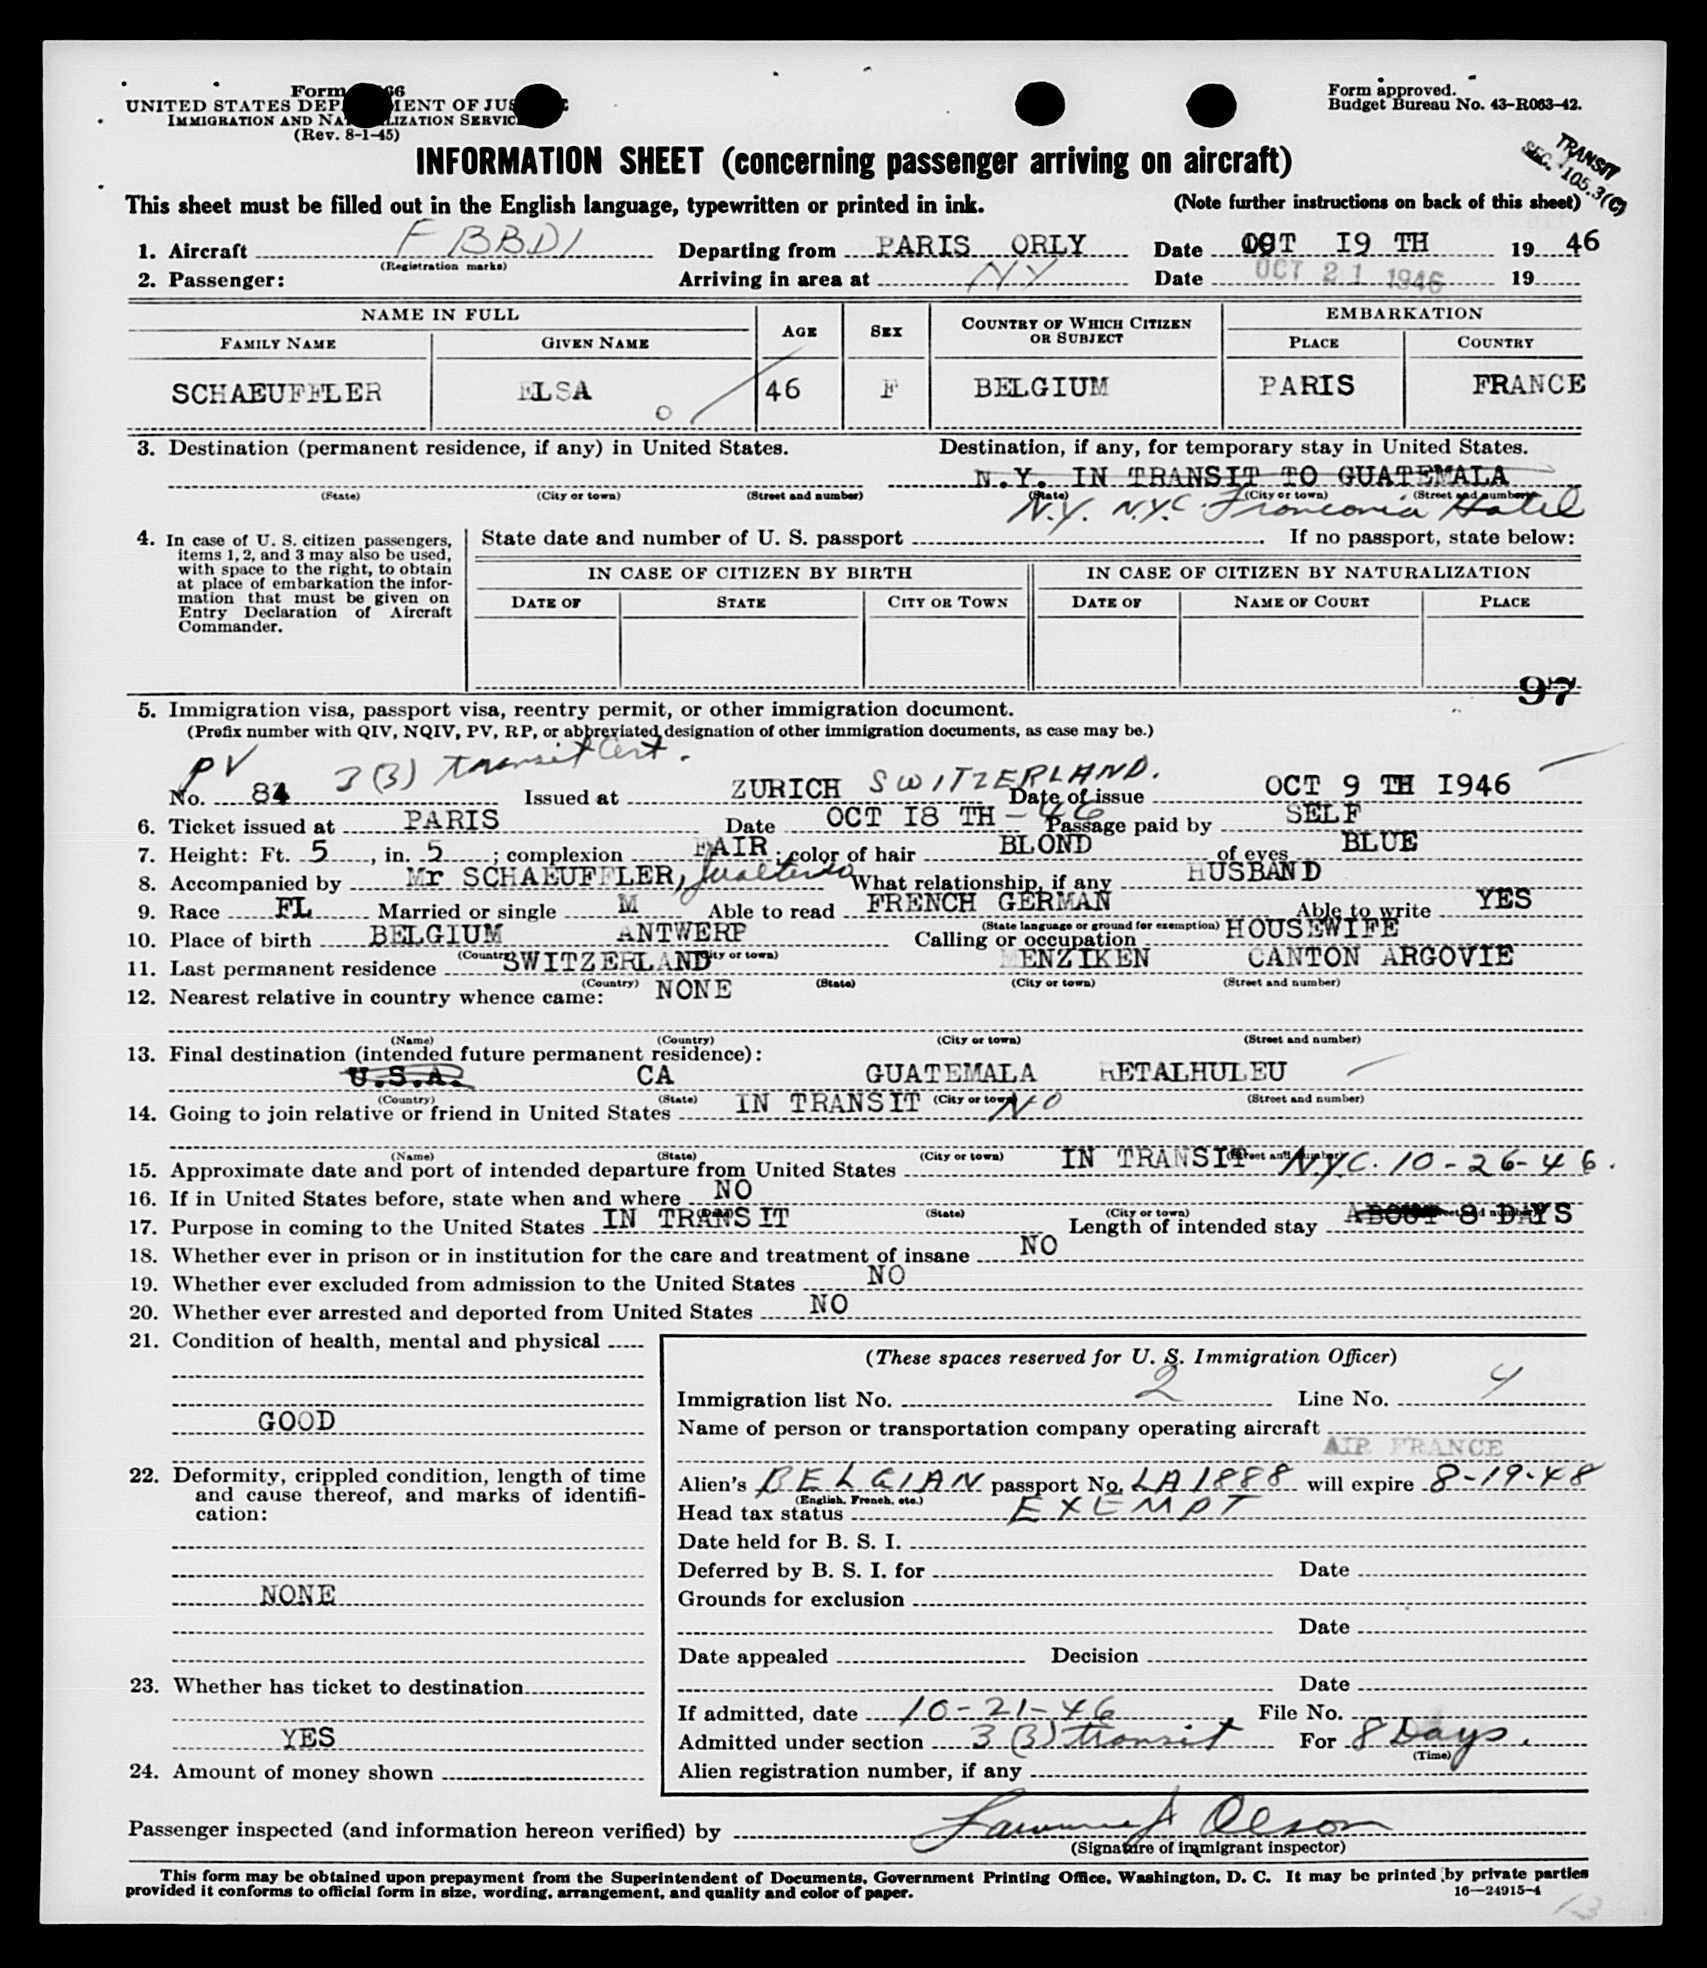 Form 66
UNITED STATES DEP MENT OF JUS
IMMIGRATION AND NA LIZATION SERVIC
(Rev. 8-1-45)
Form approved.
Budget Bureau No. 43-R063-42.
TRANSIT
SEC. 105.3(C)
INFORMATION SHEET (concerning passenger arriving on aircraft)
This sheet must be filled out in the English language, typewritten or printed in ink. (Note further instructions on back of this sheet)
1. Aircraft F BBDI Departing from PARIS ORLY Date OCT I9 TH 19 46
(Registration marks)
2. Passenger: Arriving in area at NY Date OCT 21 1946 19
NAME IN FULL AGE SEX COUNTRY OF WHICH CITIZEN OR SUBJECT EMBARKATION
FAMILY NAME GIVEN NAME PLACE COUNTRY
SCHAEUFFLER ELSA 46 F BELGIUM PARIS FRANCE
3. Destination (permanent residence, if any) in United States. Destination, if any, for temporary stay in United States.
N.Y. IN TRANSIT TO GUATEMALA
(State) (City or town) (Street and number) (State) (City or town) (Street and number)
N.Y. N.Y.C. Franconia Hotel
4. In case of U. S. citizen passengers, items 1, 2, and 3 may also be used, with space to the right, to obtain at place of embarkation the information that must be given on Entry Declaration of Aircraft Commander.
State date and number of U. S. passport . If no passport, state below:
IN CASE OF CITIZEN BY BIRTH IN CASE OF CITIZEN BY NATURALIZATION
DATE OF STATE CITY OR TOWN DATE OF NAME OF COURT PLACE
97
5. Immigration visa, passport visa, reentry permit, or other immigration document.
(Prefix number with QIV, NQIV, PV, RP, or abbreviated designation of other immigration documents, as case may be.)
PV 3 (3) transit Cert.
No. 84 Issued at ZURICH SWITZERLAND. Date of issue OCT 9 TH I946
6. Ticket issued at PARIS Date OCT I8 TH - 46 Passage paid by SELF
7. Height: Ft. 5, in. 5; complexion FAIR; color of hair BLOND of eyes BLUE
8. Accompanied by Mr SCHAEUFFLER, What relationship, if any HUSBAND
9. Race FL Married or single M Able to read FRENCH GERMAN Able to write YES
(State language or ground for exemption)
10. Place of birth BELGIUM ANTWERP Calling or occupation HOUSEWIFE
(Country) (City or town)
11. Last permanent residence SWITZERLAND MENZIKEN CANTON ARGOVIE
(Country) (State) (City or town) (Street and number)
12. Nearest relative in country whence came: NONE
(Name) (Country) (City or town) (Street and number)
13. Final destination (intended future permanent residence):
U.S.A. CA GUATEMALA RETALHULEU
(Country) (State) (City or town) (Street and number)
14. Going to join relative or friend in United States IN TRANSIT NO
(Name) (State) (City or town) (Street and number)
15. Approximate date and port of intended departure from United States IN TRANSIT NYC. 10-26-46.
16. If in United States before, state when and where NO
(State) (City or town) (Street and number)
17. Purpose in coming to the United States IN TRANSIT Length of intended stay ABOUT 8 DAYS
18. Whether ever in prison or in institution for the care and treatment of insane NO
19. Whether ever excluded from admission to the United States NO
20. Whether ever arrested and deported from United States NO
21. Condition of health, mental and physical
GOOD
22. Deformity, crippled condition, length of time and cause thereof, and marks of identification:
NONE
23. Whether has ticket to destination
YES
24. Amount of money shown
(These spaces reserved for U. S. Immigration Officer)
Immigration list No. 2 Line No. 4
Name of person or transportation company operating aircraft
AIR FRANCE
Alien's BELGIAN passport No. LA1888 will expire 8-19-48
(English, French, etc.)
Head tax status EXEMPT
Date held for B. S. I.
Deferred by B. S. I. for Date
Grounds for exclusion
Date
Date appealed Decision
Date
If admitted, date 10-21-46 File No.
Admitted under section 3 (3) transit For 8 Days.
(Time)
Alien registration number, if any
Passenger inspected (and information hereon verified) by Olson
(Signature of immigrant inspector)
This form may be obtained upon prepayment from the Superintendent of Documents, Government Printing Office, Washington, D. C. It may be printed by private parties
provided it conforms to official form in size, wording, arrangement, and quality and color of paper.
16—24915-4
13